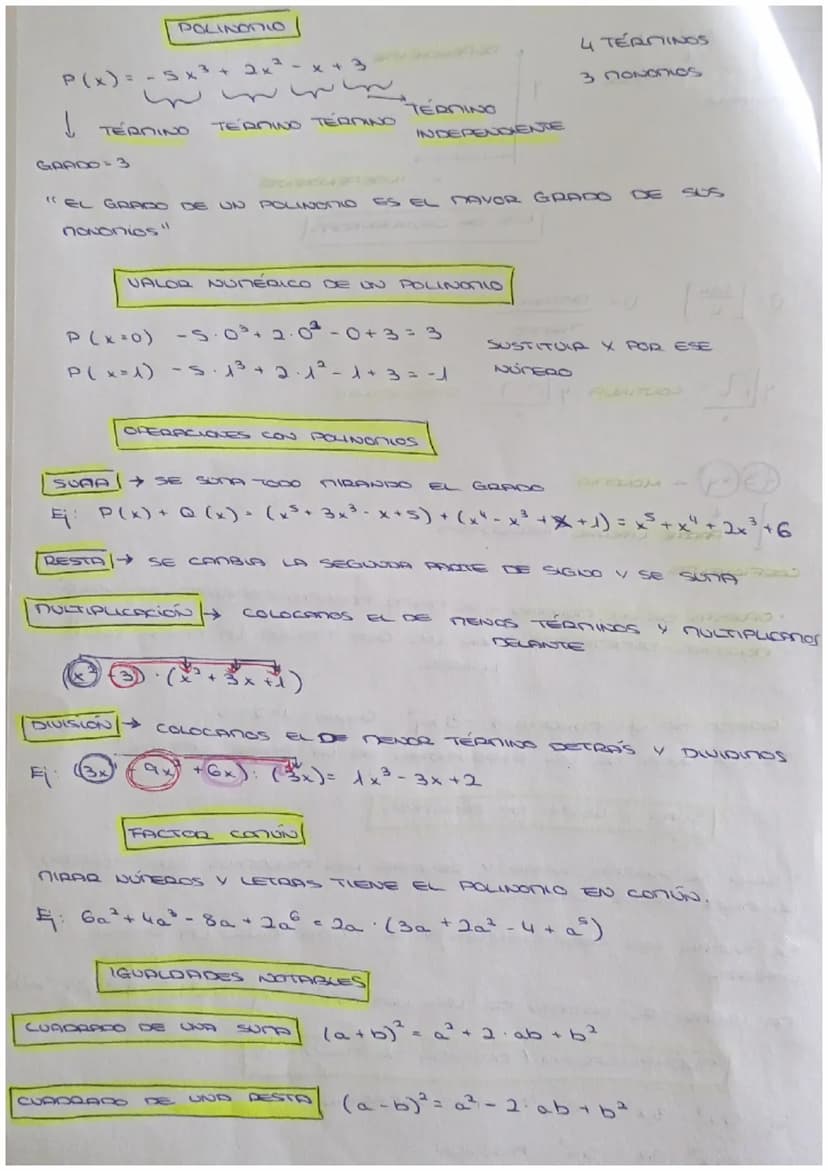 POLINOMIO
4 TÉRMINOS
P(x) = -5x³ + 2x² - x + 3
3 MONOMIOS
↓ TÉRMINO TÉRMINO TÉRMINO TÉRMINO INDEPENDIENTE
GRADO = 3
"EL GRADO DE UN POLINOMIO ES EL MAYOR GRADO DE SUS
MONOMIOS"
VALOR NUMÉRICO DE UN POLINOMIO
P(x=0) -5·0³ + 2·0² - 0 + 3 = 3
P(x=1) -5·1³ + 2·1² - 1 + 3 = -1
SUSTITUIR X POR ESE
NÚMERO
OPERACIONES CON POLINOMIOS
SUMA → SE SUMA TODO MIRANDO EL GRADO
Ej: P(x) + Q(x) = (x⁵ + 3x³ - x + 5) + (x⁴ - x³ + x + 1) = x⁵ + x⁴ + 2x³ + 6
RESTA → SE CAMBIA LA SEGUNDA PARTE DE SIGNO Y SE SUMA
MULTIPLICACIÓN → COLOCAMOS EL DE MENOS TÉRMINOS Y MULTIPLICAMOS
DELANTE
(x² - 3) · (x³ + 3x + 1)
DIVISIÓN → COLOCAMOS EL DE MENOR TÉRMINO DETRÁS Y DIVIDIMOS
Ej: (3x - 9x² + 6x) : (3x) = 1x³ - 3x + 2
FACTOR COMÚN
MIRAR NÚMEROS Y LETRAS TIENE EL POLINOMIO EN COMÚN.
Ej: 6a² + 4a³ - 8a + 2a⁶ = 2a · (3a + 2a² - 4 + a⁵)
IGUALDADES NOTABLES
CUADRADO DE UNA SUMA (a + b)² = a² + 2·ab + b²
CUADRADO DE UNA RESTA (a - b)² = a² - 2·ab + b²